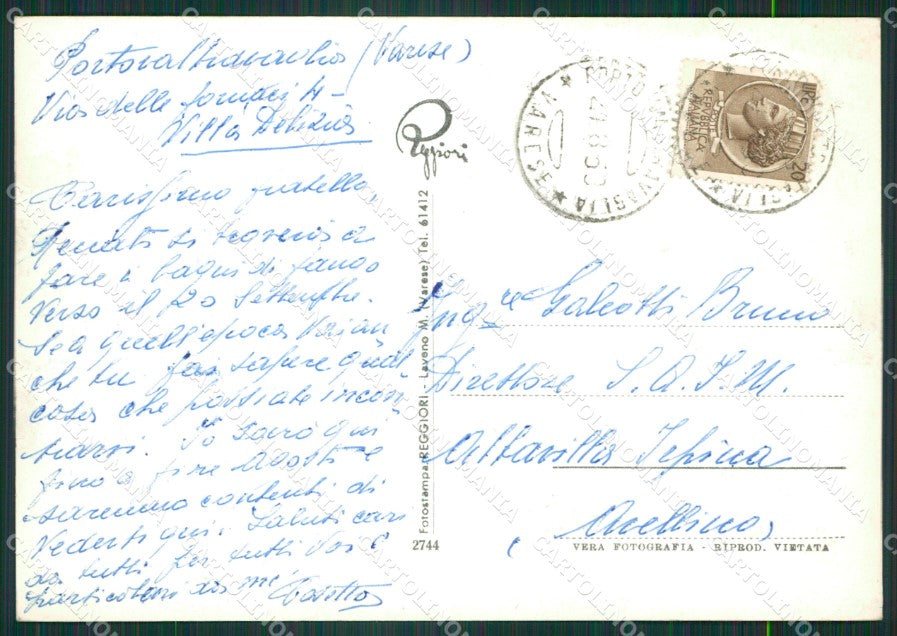 Portovaltravaglia (Varese)
Via delle fornaci 4-
Villa Delizia
Carissimo fratello,
Renato si
fare i bagni di fango
verso il 20 Settembre.
Se a quell'epoca
che tu fai sapere qual
cosa che possiate incon
trarvi. Io sarò qui
fino a fine Agosto e
saremmo contenti di
vederti qui. Saluti cari
da tutti per tutti voi e
particolari da me
Reggiori
Fotostampa REGGIORI - Laveno M. (Varese) Tel. 61412
2744
PORTO VALTRAVAGLIA
* VARESE *
REPUBBLICA
ITALIANA
LIRE 20
Ing^re Galeotti Bruno
Direttore S.A.I.M.
Altavilla Irpina
(Avellino)
VERA FOTOGRAFIA - RIPROD. VIETATA
CARTOLINOMANIA